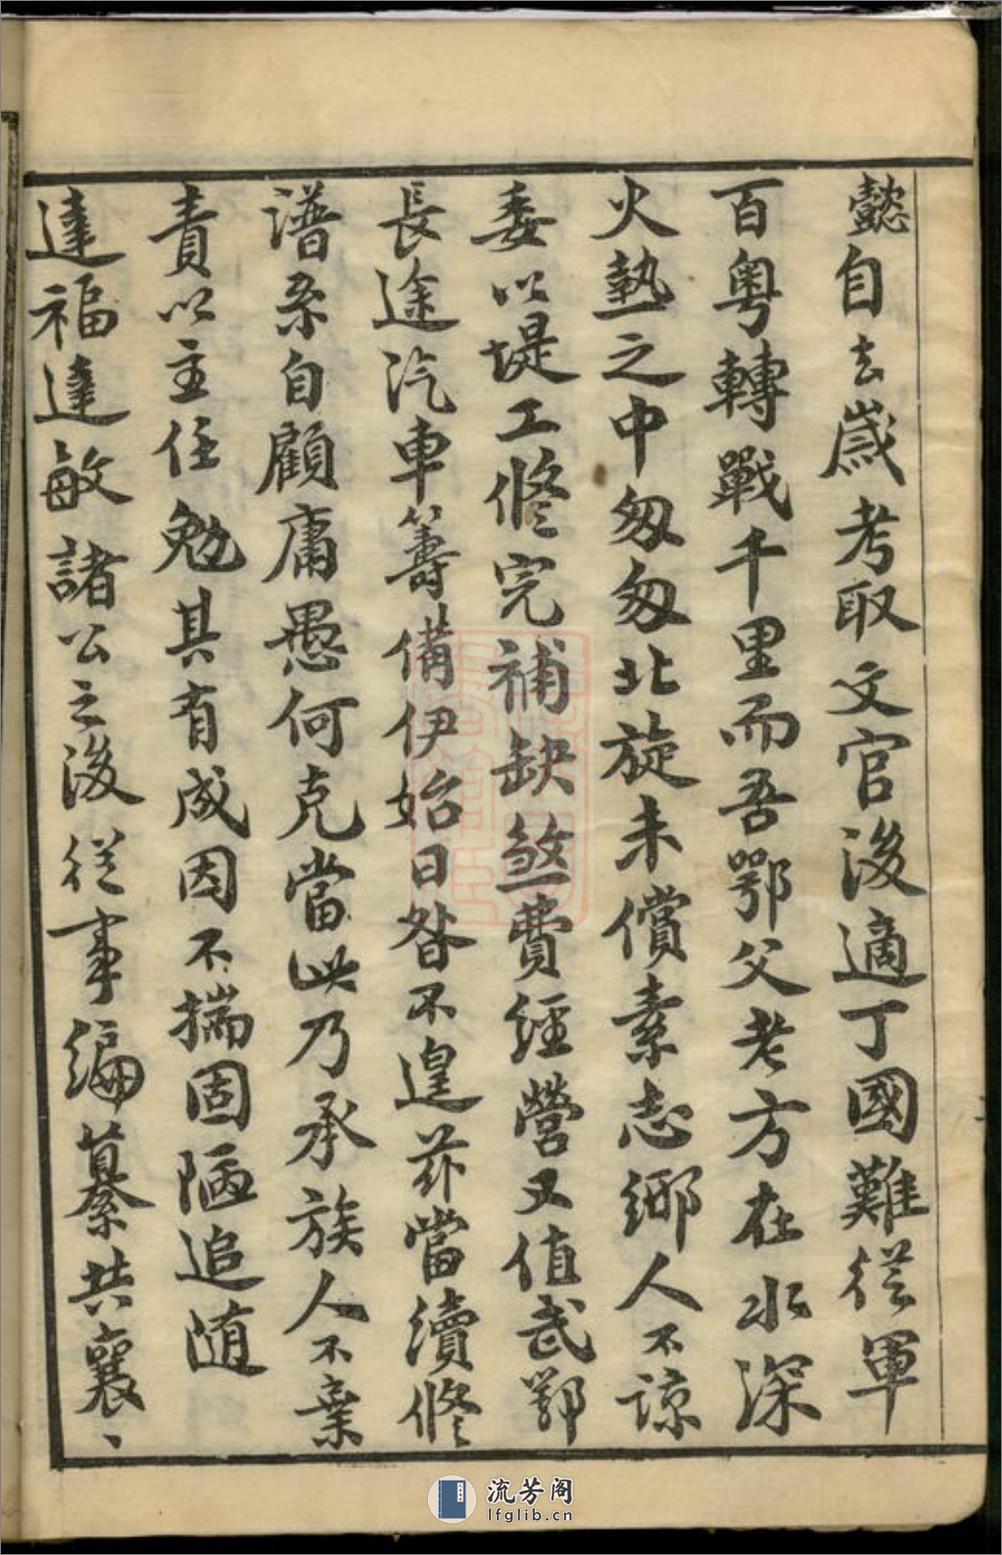 懿自去歲考取文官後適丁國難從軍
百粵轉戰千里而吾鄂父老方在水深
火熱之中匆匆北旋未償素志鄉人不諒
委以堤工修完補缺煞費經營又值武鄂
長途汽車籌備伊始日昝不遑茲當續修
譜系自顧庸愚何克當此乃承族人不棄
責以主任勉其有成因不揣固陋追隨
達福達敏諸公之後從事編纂共襄、
流芳阁
lfglib.cn